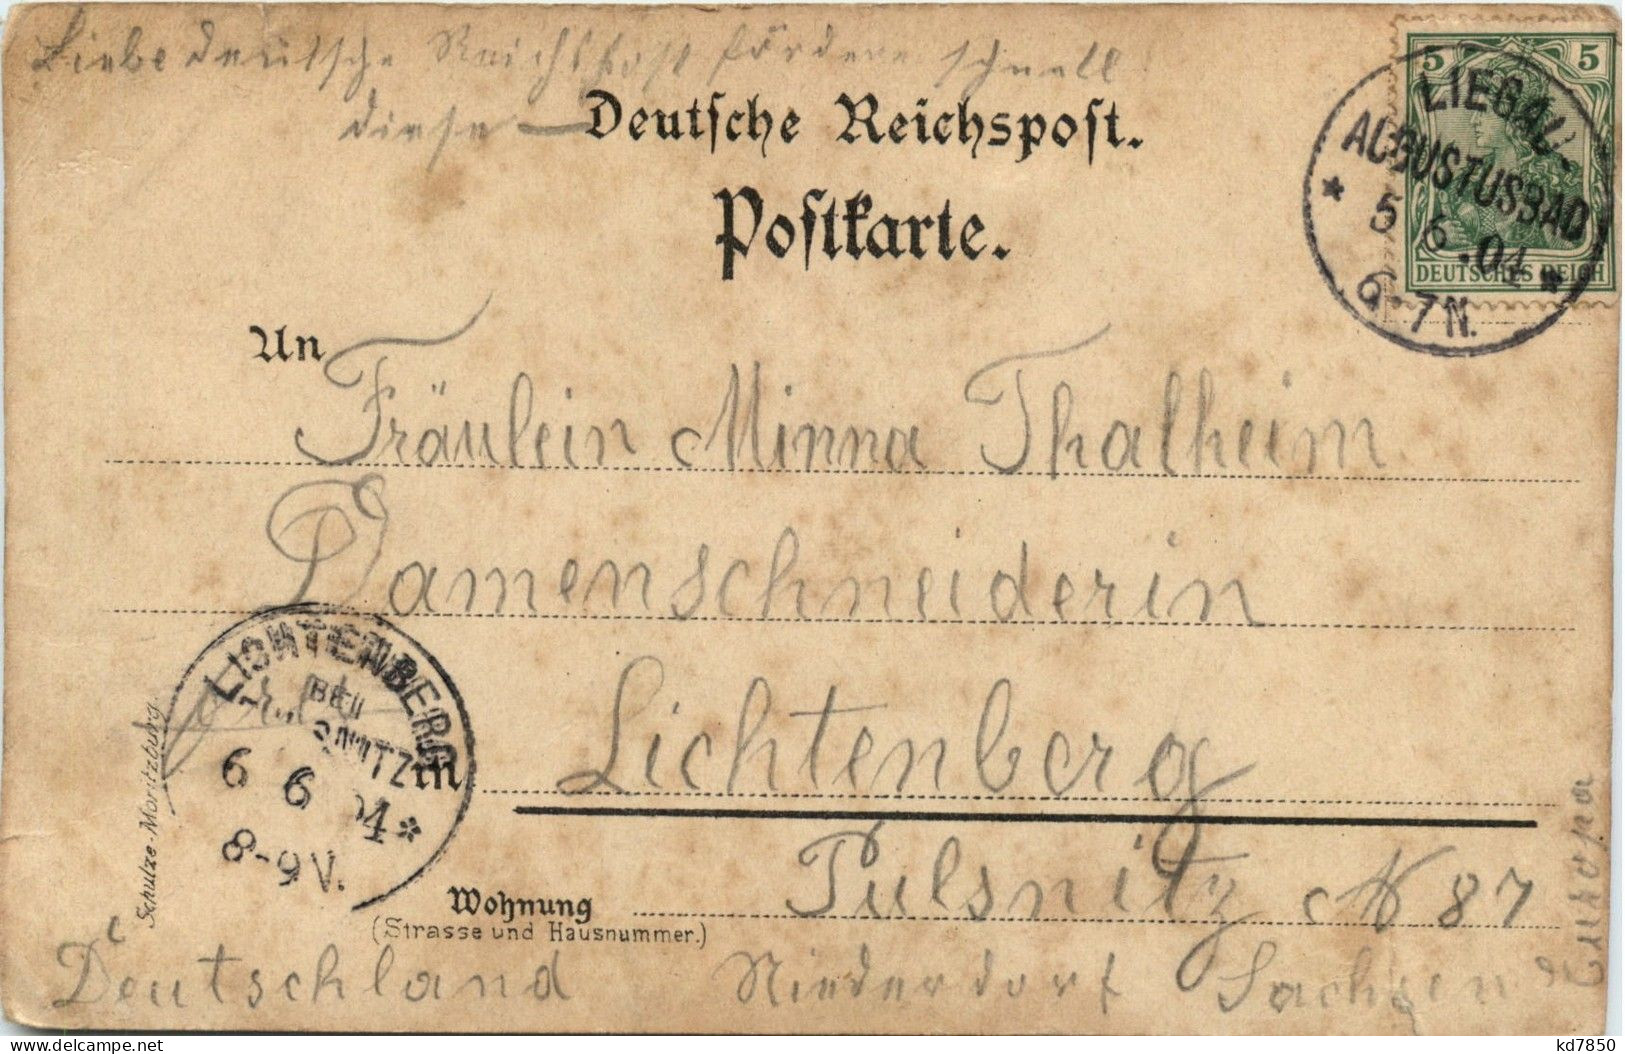 Liebe deutsche Reichspost fördere schnell
diese —
Deutsche Reichspost.
Postkarte.
5 5
DEUTSCHES REICH
LIEGAU-
AUGUSTUSBAD
5 6 04
6-7 N.
An Fräulein Minna Thalheim
Damenschneiderin
LICHTENBERG
BEI
6 6 04
8-9 V.
in Lichtenberg
Pulsnitz N 87
Wohnung
(Strasse und Hausnummer.)
Deutschland Niederdorf Sachsen
Europa
Schulze-Moritzburg.
kd7850